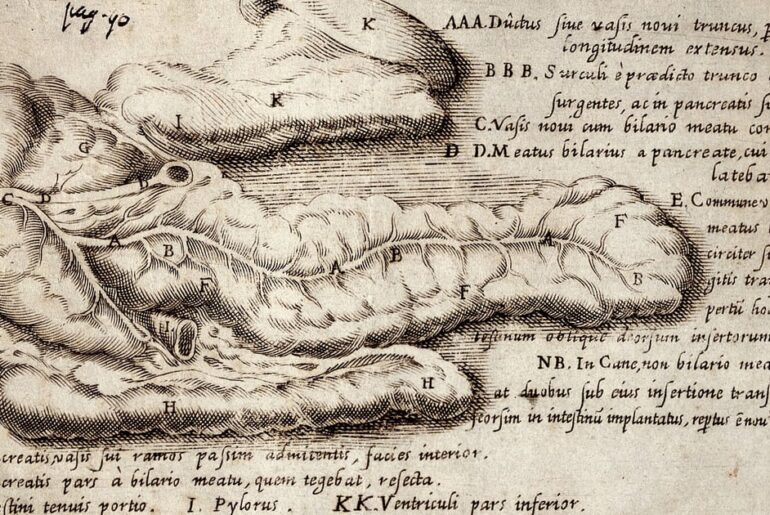 pag. 90
AAA. Dûctus siue vasis noui truncus, p
longitudinem extensus.
BBB. Surculi è prædicto trunco
surgentes, ac in pancreatis su
C. Vasis noui cum bilario meatu con
D D. Meatus bilarius a pancreate, cui
lateba
E. Commune v
meatus
circiter
gitis tra
pertũ ho
obliquè insertorum
NB. In Cane, non bilario mea
at duobus sub eius insertione trans
seorsim in intestinũ implantatus, reptus
creatis, vasis sui ramos passim admittentis, facies interior.
creatis pars à bilario meatu, quem tegebat, resecta.
stini tenuis portio. I. Pylorus. KK. Ventriculi pars inferior.
K
K
I
G
D
C D
A
B
A
B
A
F
B
F
F
I
H
H